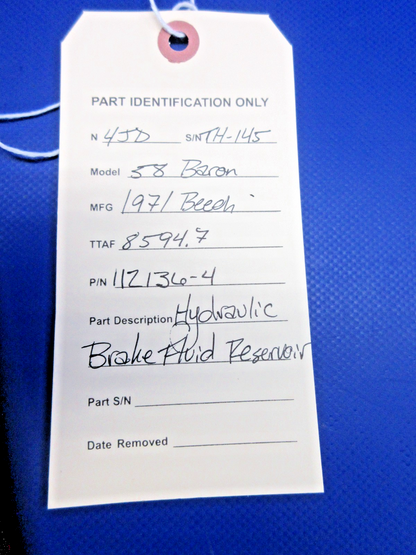 PART IDENTIFICATION ONLY
N 4JD S/N TH-145
Model 58 Baron
MFG 1971 Beech
TTAF 8594.7
P/N 112136-4
Part Description Hydraulic
Brake Fluid Reservoir
Part S/N
Date Removed